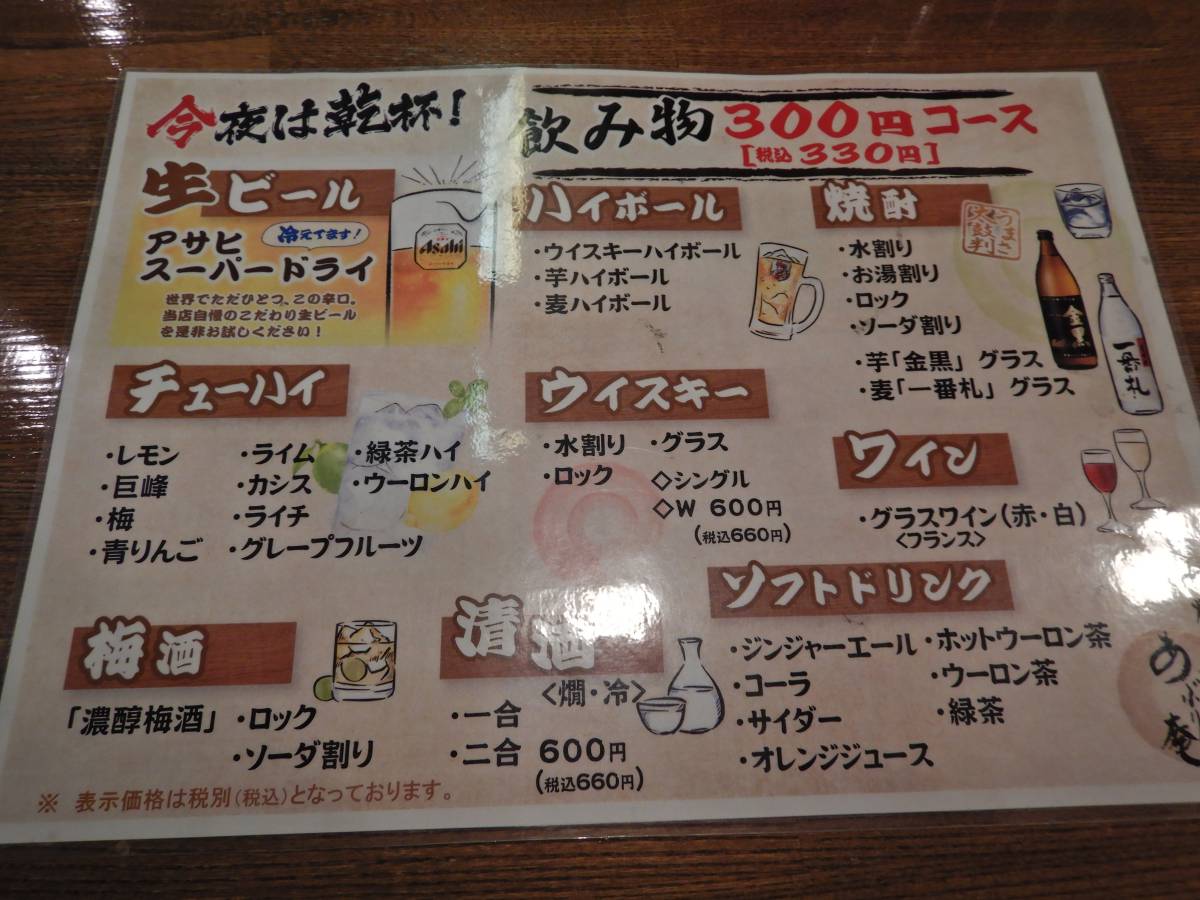 今夜は乾杯!
飲み物 300円コース
[税込 330円]
生ビール
アサヒ
スーパードライ
冷えてます!
世界でただひとつ、この辛口。
当店自慢のこだわり生ビール
を是非お試しください!
Asahi
ハイボール
・ウイスキーハイボール
・芋ハイボール
・麦ハイボール
焼酎
うまさ
太鼓判
・水割り
・お湯割り
・ロック
・ソーダ割り
・芋「金黒」グラス
・麦「一番札」グラス
金黒
一番札
チューハイ
・レモン ・ライム ・緑茶ハイ
・巨峰 ・カシス ・ウーロンハイ
・梅 ・ライチ
・青りんご ・グレープフルーツ
ウイスキー
・水割り ・グラス
・ロック ◇シングル
◇W 600円
(税込660円)
ワイン
・グラスワイン(赤・白)
<フランス>
梅酒
「濃醇梅酒」 ・ロック
・ソーダ割り
清酒
<燗・冷>
・一合
・二合 600円
(税込660円)
ソフトドリンク
・ジンジャーエール ・ホットウーロン茶
・コーラ ・ウーロン茶
・サイダー ・緑茶
・オレンジジュース
※ 表示価格は税別(税込)となっております。